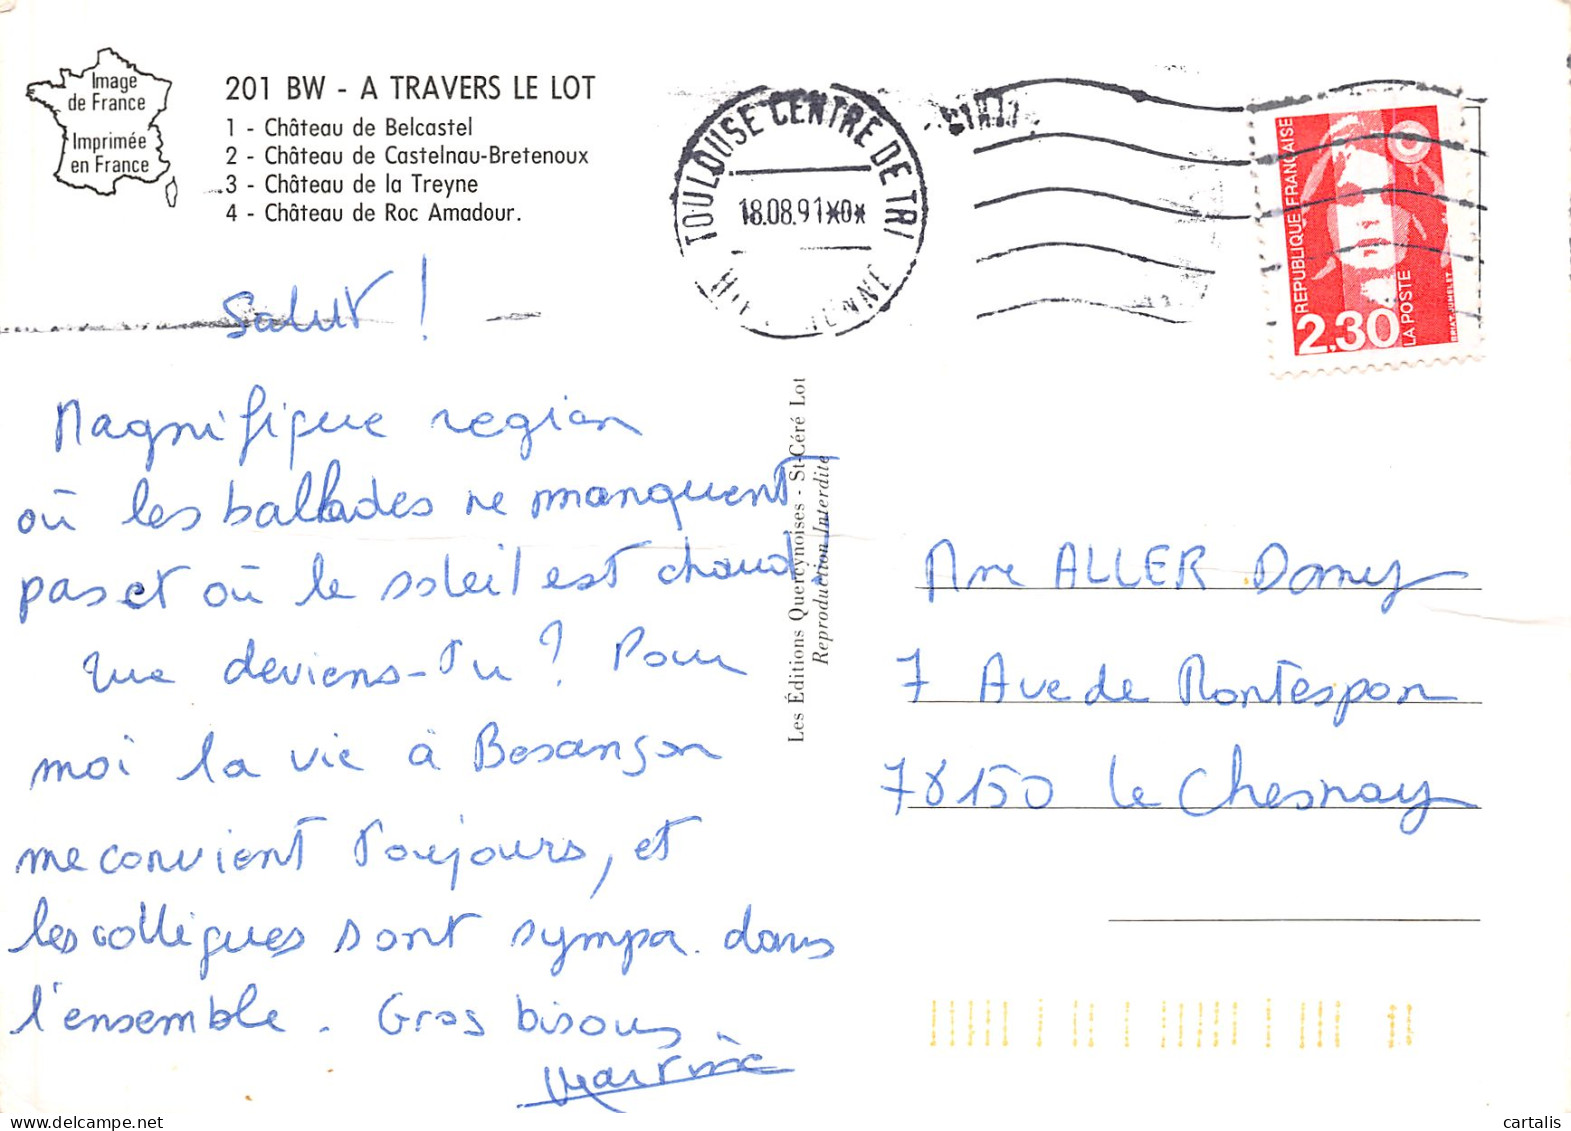 Image
de France
Imprimée
en France
201 BW - A TRAVERS LE LOT
1 - Château de Belcastel
2 - Château de Castelnau-Bretenoux
3 - Château de la Treyne
4 - Château de Roc Amadour.
TOULOUSE CENTRE DE TRI
18.08.91*0*
REPUBLIQUE FRANÇAISE
2,30
LA POSTE
BRIAT-JUMELET
Salut !
Magnifique region
où les ballades ne manquent
pas et où le soleil est chaud
Que deviens-tu ? Pour
moi la vie à Besançon
me convient toujours, et
les collègues sont sympa. dans
l'ensemble. Gros bisous.
Martine
Les Éditions Quercynoises - St-Céré Lot
Reproduction Interdite
Mme ALLER Dany
7 Ave de Montespan
78150 Le Chesnay
cartalis